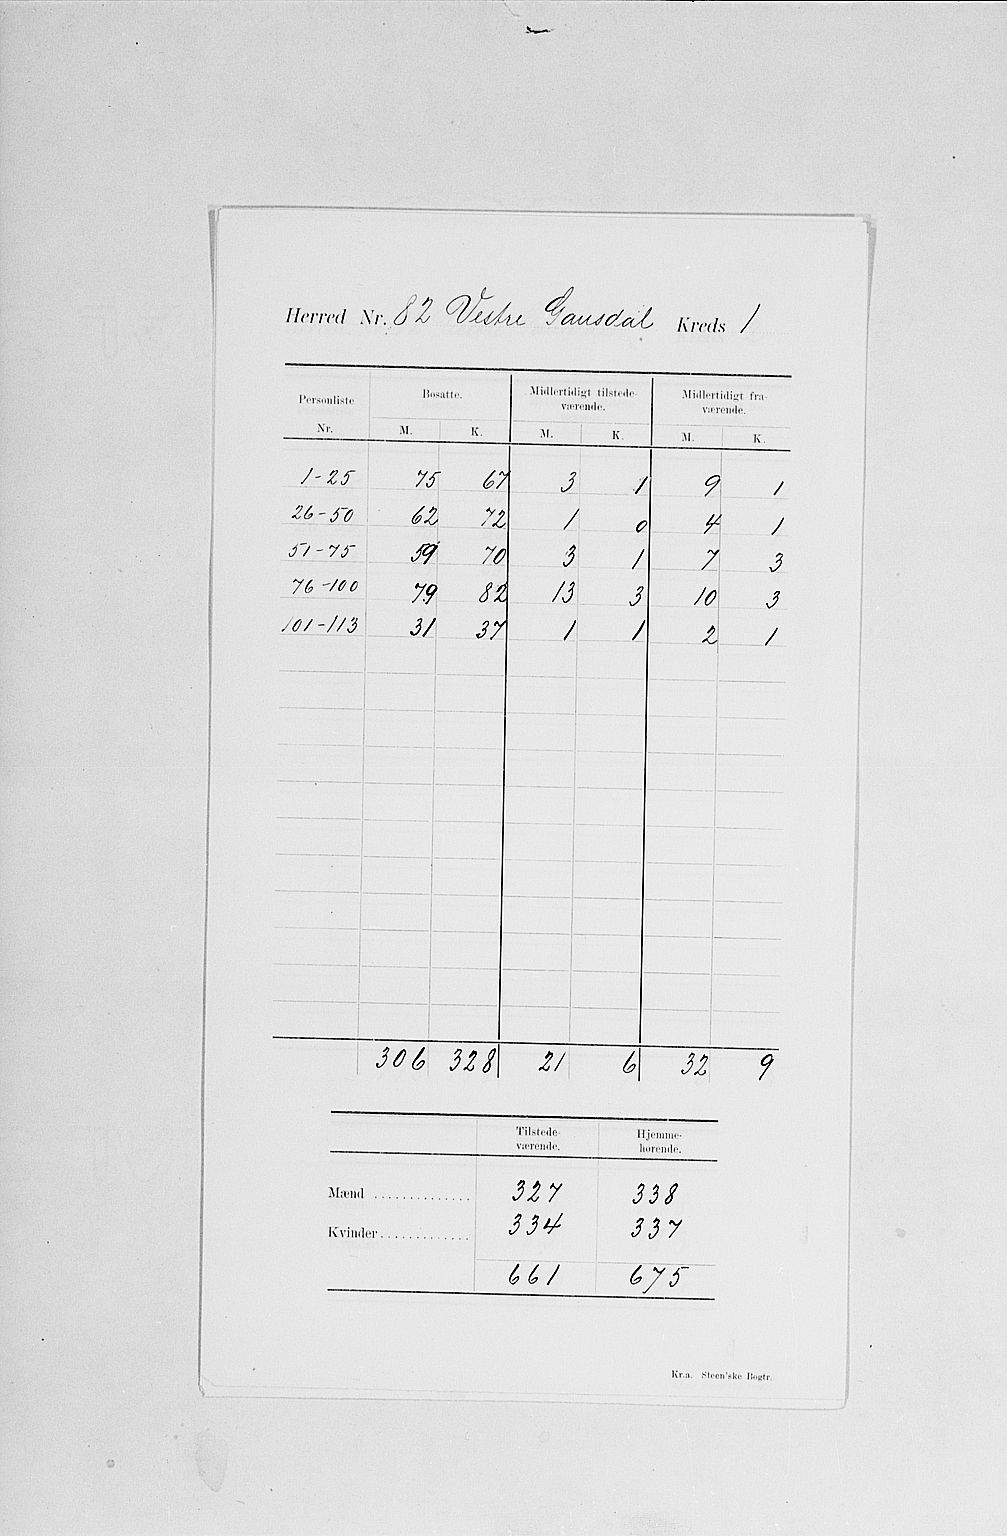 Herred Nr. 82 Vestre Gausdal Kreds 1
Personliste Bosatte. Midlertidigt tilstede- Midlertidigt fra-
værende. værende.
Nr. M. K. M. K. M. K.
1-25 75 67 3 1 9 1
26-50 62 72 1 0 4 1
51-75 59 70 3 1 7 3
76-100 79 82 13 3 10 3
101-113 31 37 1 1 2 1
306 328 21 6 32 9
Tilstede- Hjemme-
værende. hørende.
Mænd .............. 327 338
Kvinder ............. 334 337
661 675
Kr.a. Steen'ske Bogtr.